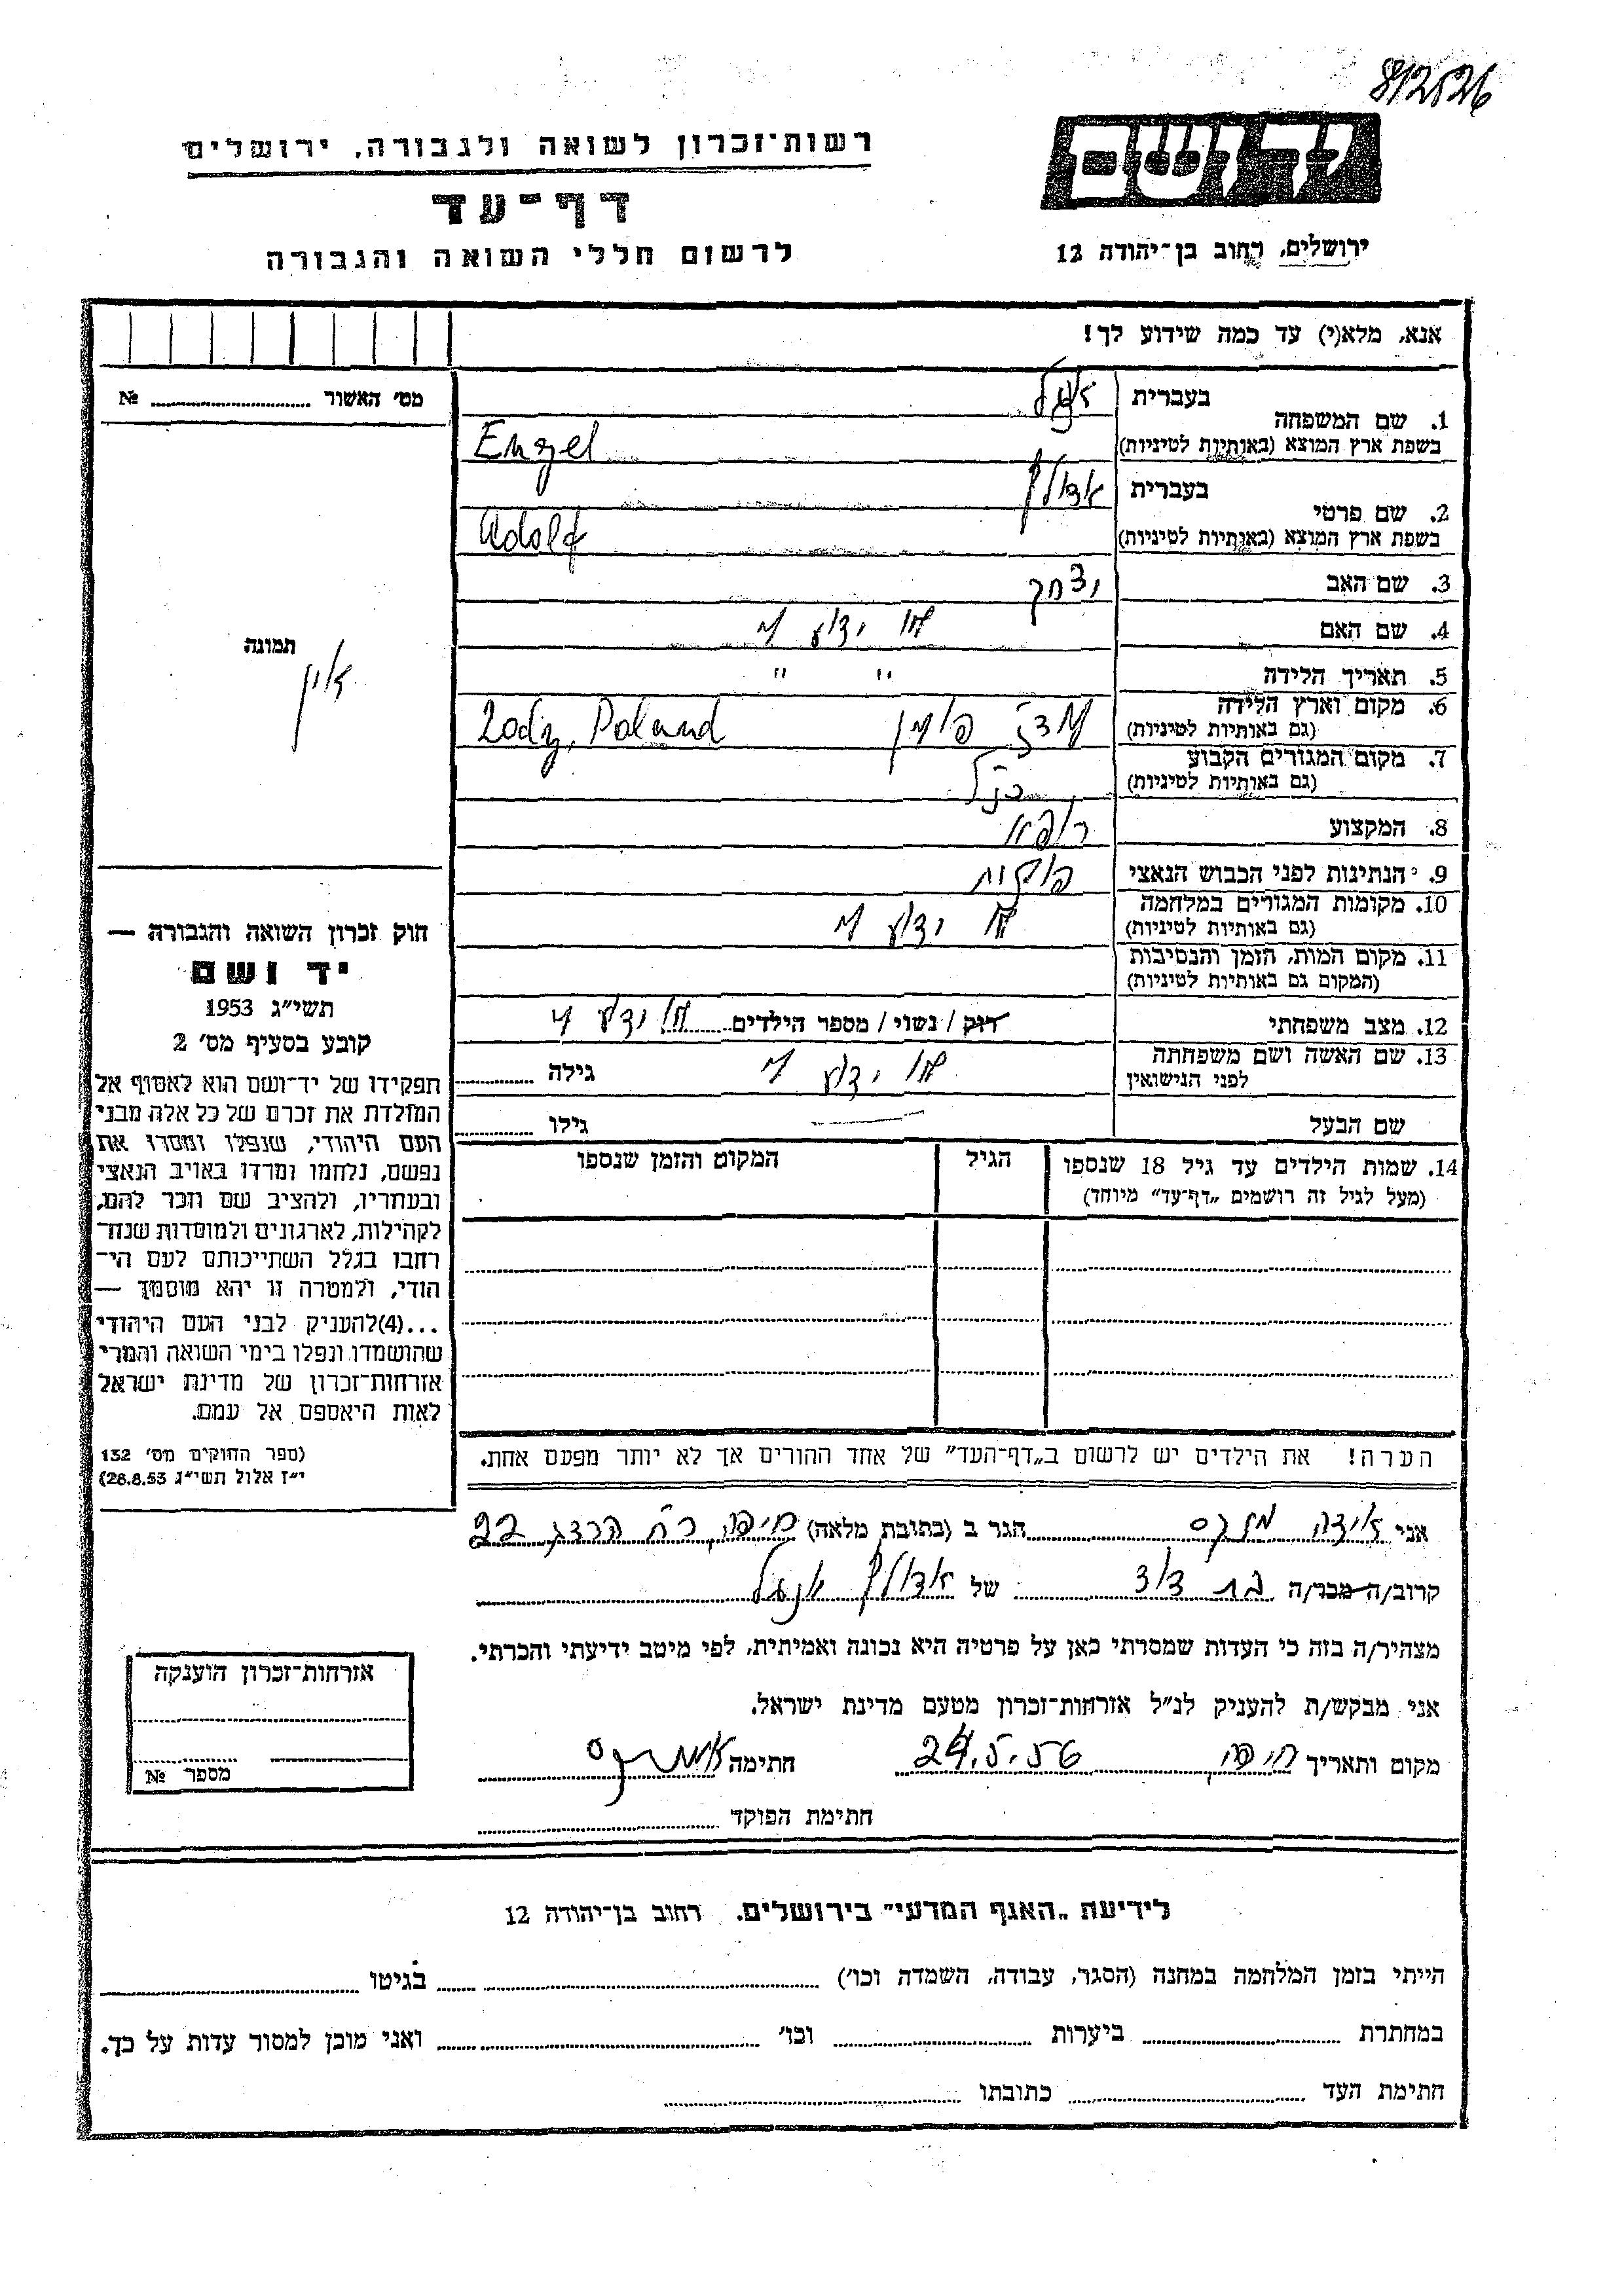 812526
יד ושם
ירושלים, רחוב בן־יהודה 12
רשות־זכרון לשואה ולגבורה, ירושלים
דף־עד
לרשום חללי השואה והגבורה
אנא, מלא(י) עד כמה שידוע לך!
מס׳ האשור № 
1. שם המשפחה בעברית אנגל
בשפת ארץ המוצא (באותיות לטיניות) Engel
2. שם פרטי בעברית אדולף
בשפת ארץ המוצא (באותיות לטיניות) Adolf
3. שם האב יצחק
4. שם האם לא ידוע לי
5. תאריך הלידה " "
6. מקום וארץ הלידה
(גם באותיות לטיניות) לודז פולין Lodz, Poland
7. מקום המגורים הקבוע
(גם באותיות לטיניות) כנ"ל
8. המקצוע רופא
9. הנתינות לפני הכבוש הנאצי פולנית
10. מקומות המגורים במלחמה
(גם באותיות לטיניות) לא ידוע לי
11. מקום המות, הזמן והנסיבות
(המקום גם באותיות לטיניות)
12. מצב משפחתי רווק / נשוי / מספר הילדים לא ידוע לי
13. שם האשה ושם משפחתה
לפני הנישואין לא ידוע לי גילה
שם הבעל — גילו
14. שמות הילדים עד גיל 18 שנספו הגיל המקום והזמן שנספו
(מעל לגיל זה רושמים „דף־עד" מיוחד)
הערה! את הילדים יש לרשום ב„דף־העד" של אחד ההורים אך לא יותר מפעם אחת.
תמונה
אין
חוק זכרון השואה והגבורה —
יד ושם
תשי״ג 1953
קובע בסעיף מס׳ 2
תפקידו של יד־ושם הוא לאסוף אל
המולדת את זכרם של כל אלה מבני
העם היהודי, שנפלו ומסרו את
נפשם, נלחמו ומרדו באויב הנאצי
ובעוזריו, ולהציב שם וזכר להם,
לקהילות, לארגונים ולמוסדות שנח־
רחבו בגלל השתייכותם לעם הי־
הודי, ולמטרה זו יהא מוסמך —
...(4)להעניק לבני העם היהודי
שהושמדו ונפלו בימי השואה והמרי
אזרחות־זכרון של מדינת ישראל
לאות היאספם אל עמם.
(ספר החוקים מס׳ 132
י״ז אלול תשי״ג 28.8.53)
אני אידה הגר ב (כתובת מלאה) חיפה, רח הרצל 22
קרוב/ה מכר/ה בת דוד של אדולף אנגל
מצהיר/ה בזה כי העדות שמסרתי כאן על פרטיה היא נכונה ואמיתית, לפי מיטב ידיעתי והכרתי.
אני מבקש/ת להעניק לנ״ל אזרחות־זכרון מטעם מדינת ישראל.
מקום ותאריך חיפה 24.5.56 חתימה
חתימת הפוקד
אזרחות־זכרון הוענקה
מספר №
לידיעת „האגף המדעי" בירושלים. רחוב בן־יהודה 12
הייתי בזמן המלחמה במחנה (הסגר, עבודה, השמדה וכו׳) בגיטו
במחתרת ביערות וכו׳ ואני מוכן למסור עדות על כך.
חתימת העד כתובתו